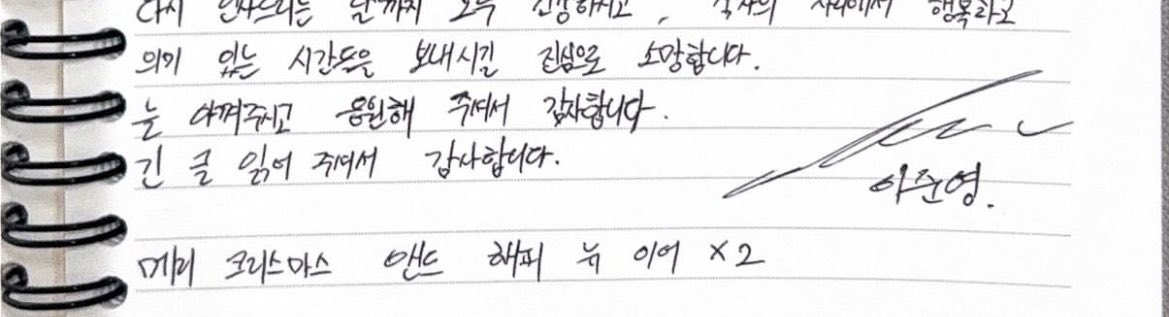 다시 인사드리는 날까지 모두 건강하시고, 각자의 자리에서 행복하고
의미 있는 시간들을 보내시길 진심으로 소망합니다.
늘 아껴주시고 응원해 주셔서 감사합니다.
긴 글 읽어 주셔서 감사합니다.
이준영.
메리 크리스마스 앤드 해피 뉴 이어 x2